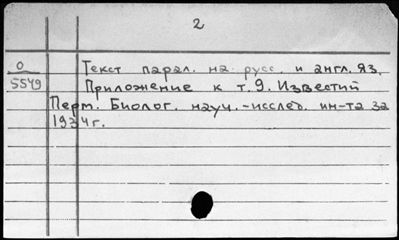 2
О
5549
Текст парал. на русс. и англ. яз.
Приложение к т.9. Известий
Перм. Биолог. науч.-исслед. ин-та за
1934г.